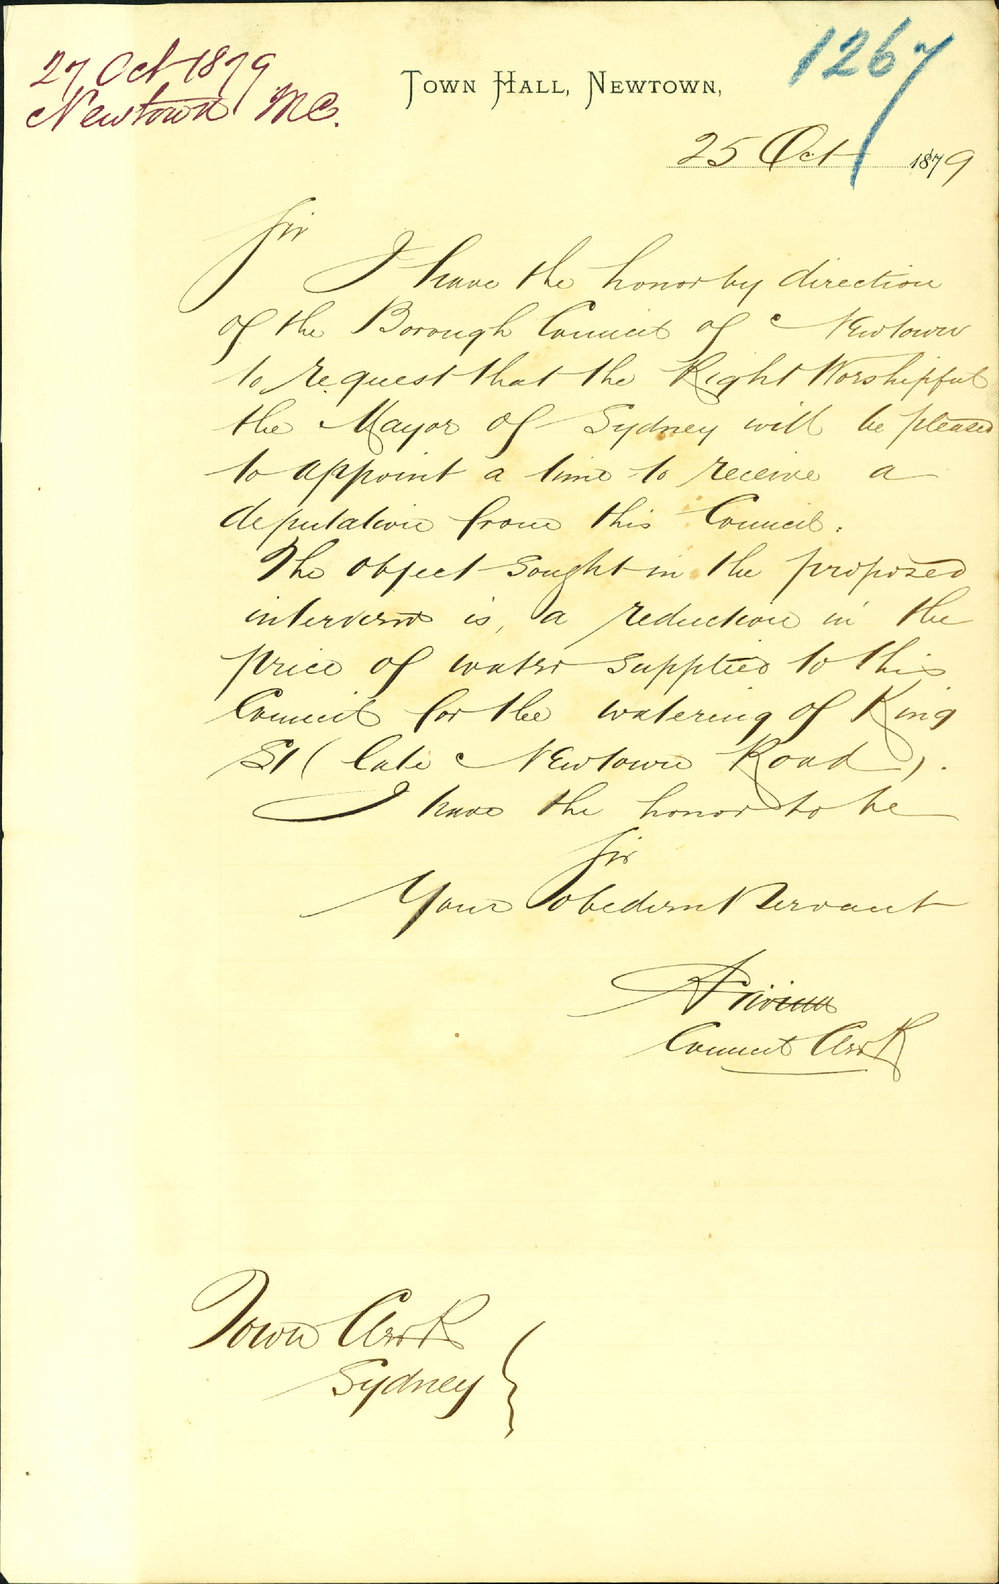 27 Oct 1879
Newtown MC.
1267
TOWN HALL, NEWTOWN,
25 Oct 1879
Sir
I have the honor by direction
of the Borough Council of Newtown
to request that the Right Worshipful
the Mayor of Sydney will be pleased
to appoint a time to receive a
deputation from this Council.
The object sought in the proposed
interview is, a reduction in the
price of water supplied to this
Council for the watering of King
St (late Newtown Road).
I have the honor to be
Sir
Your obedient Servant
Council Clerk
Town Clerk
Sydney